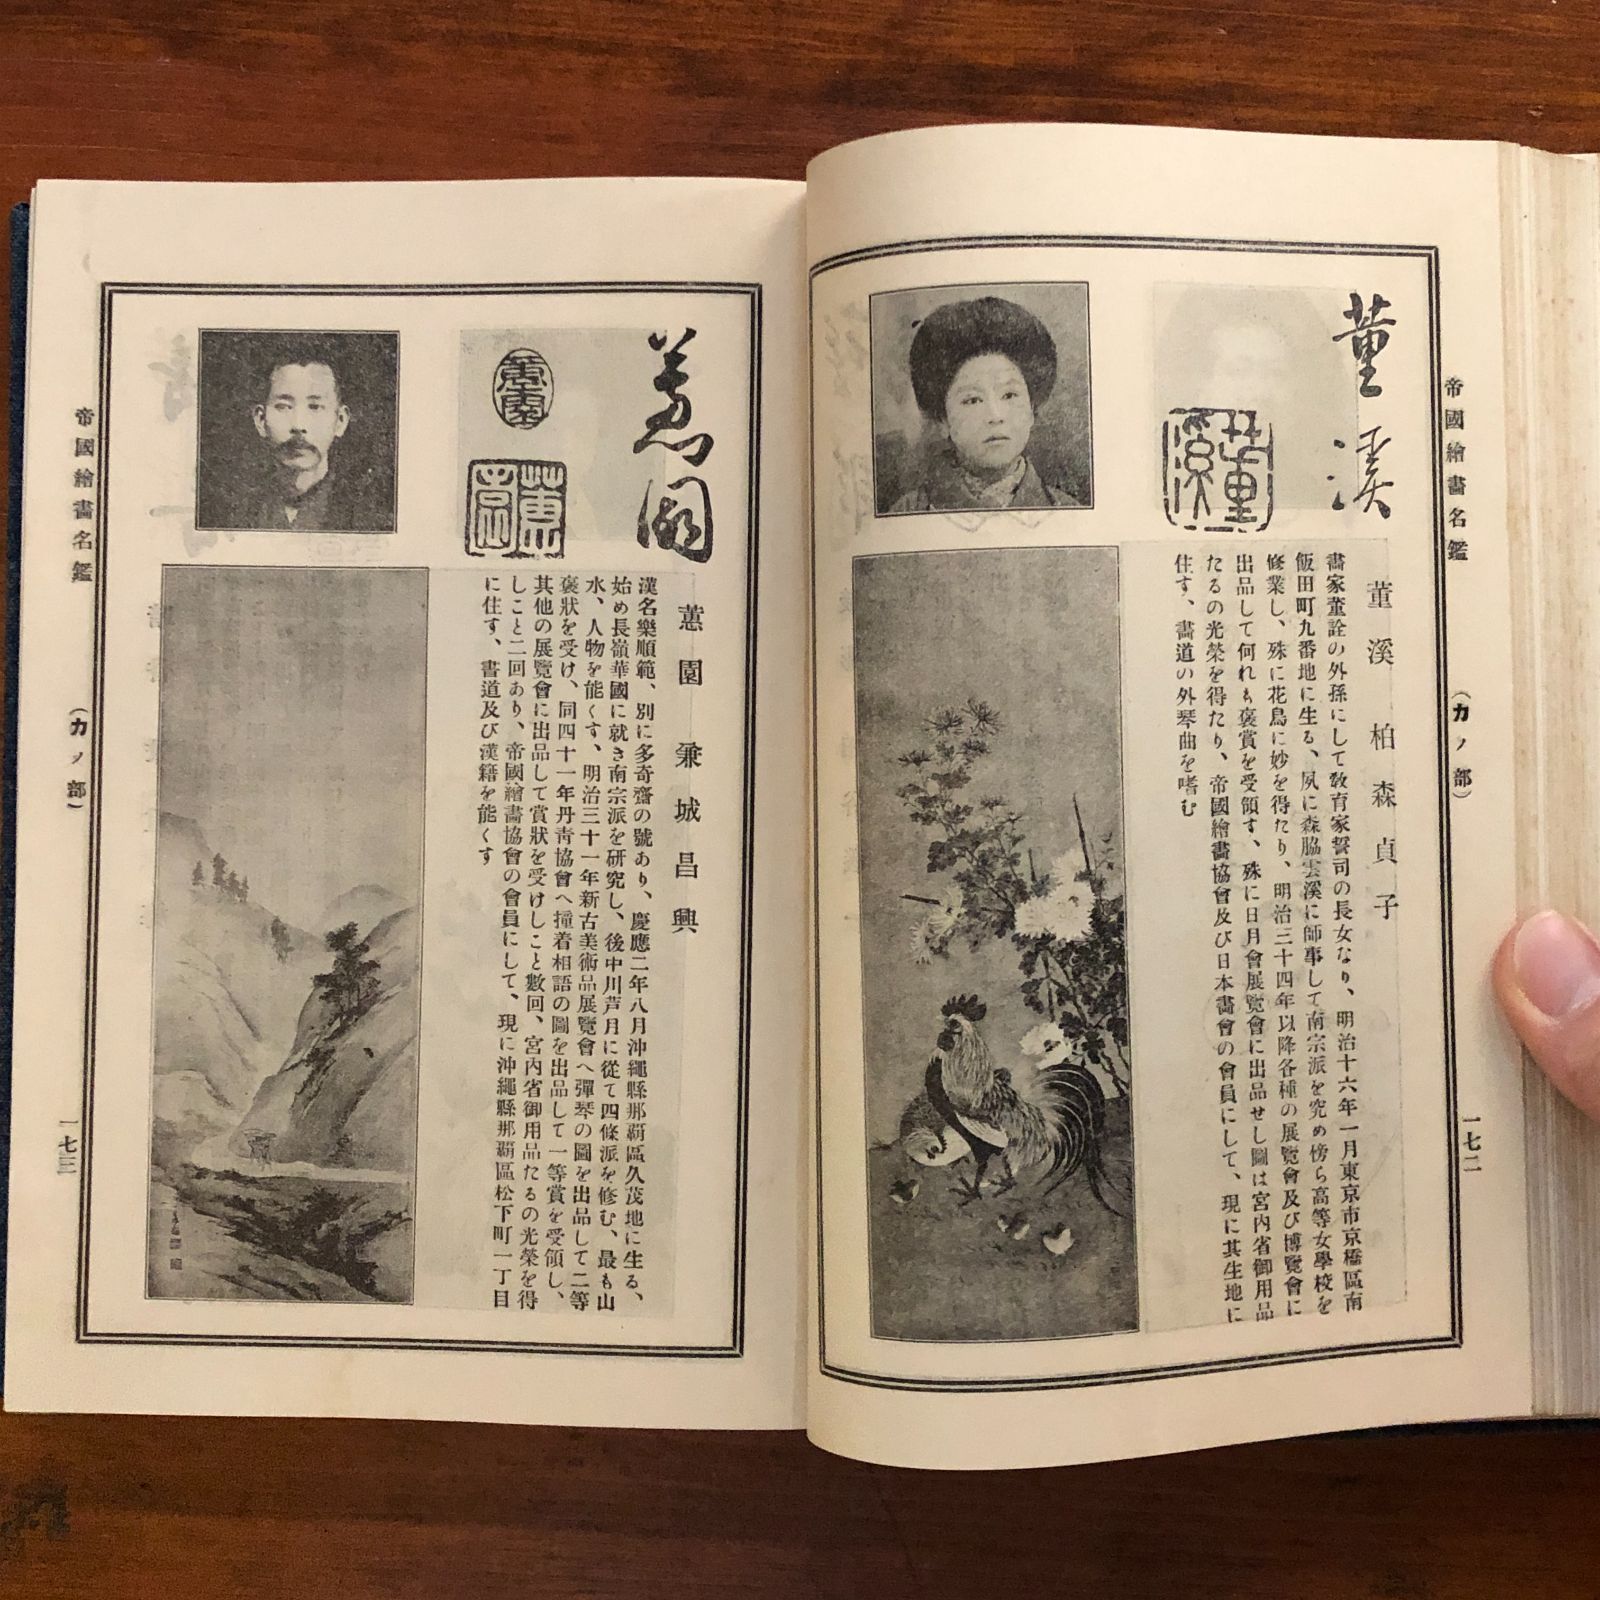 帝國繪畫名鑑
(カノ部)
一七二
董溪
董溪
董溪 柏森貞子
畫家董詮の外孫にして敎育家誓司の長女なり、明治十六年一月東京市京橋區南
飯田町九番地に生る、夙に森脇雲溪に師事して南宗派を究め傍ら高等女學校を
修業し、殊に花鳥に妙を得たり、明治三十四年以降各種の展覽會及び博覽會に
出品して何れも褒賞を受領す、殊に日月會展覽會に出品せし圖は宮內省御用品
たるの光榮を得たり、帝國繪畫協會及び日本畫會の會員にして、現に其生地に
住す、畵道の外琴曲を嗜む
蕙園
蕙園 兼城昌興
漢名樂順範、別に多奇齋の號あり、慶應二年八月沖繩縣那覇區久茂地に生る、
始め長嶺華國に就き南宗派を硏究し、後中川芦月に從て四條派を修む、最も山
水、人物を能くす、明治三十一年新古美術品展覽會へ彈琴の圖を出品して二等
褒狀を受け、同四十一年丹靑協會へ撞着相語の圖を出品して一等賞を受領し、
其他の展覽會に出品して賞狀を受けしこと數回、宮內省御用品たるの光榮を得
しこと二回あり、帝國繪畫協會の會員にして、現に沖繩縣那覇區松下町一丁目
に住す、書道及び漢籍を能くす
帝國繪畫名鑑
(カノ部)
一七三